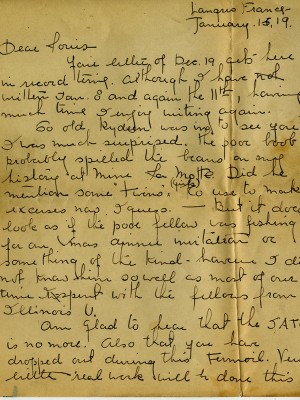 Langres France
January 15, 19.
Dear Louis
Your letter of Dec. 19 gets here
in record time. Although I have not
written Jan. 8 and again the 11th, having
much time I enjoy writing again.
So old was up to see you
I was much surprised. The poor boob
probably spilled the beans on my
history at mine La Motte. Did he
mention some Twins? (girls) No use to make
excuses now, I guess. But it does
look as if the poor fellow was fishing
for an Xmas dinner invitation or
something of the kind - however I did
not know him so well as most of our
time I spent with the fellows from
Illinois U.
Am glad to hear that the SATC
is no more. Also that you have
dropped out during this Turmoil. Very
little real work will be done this